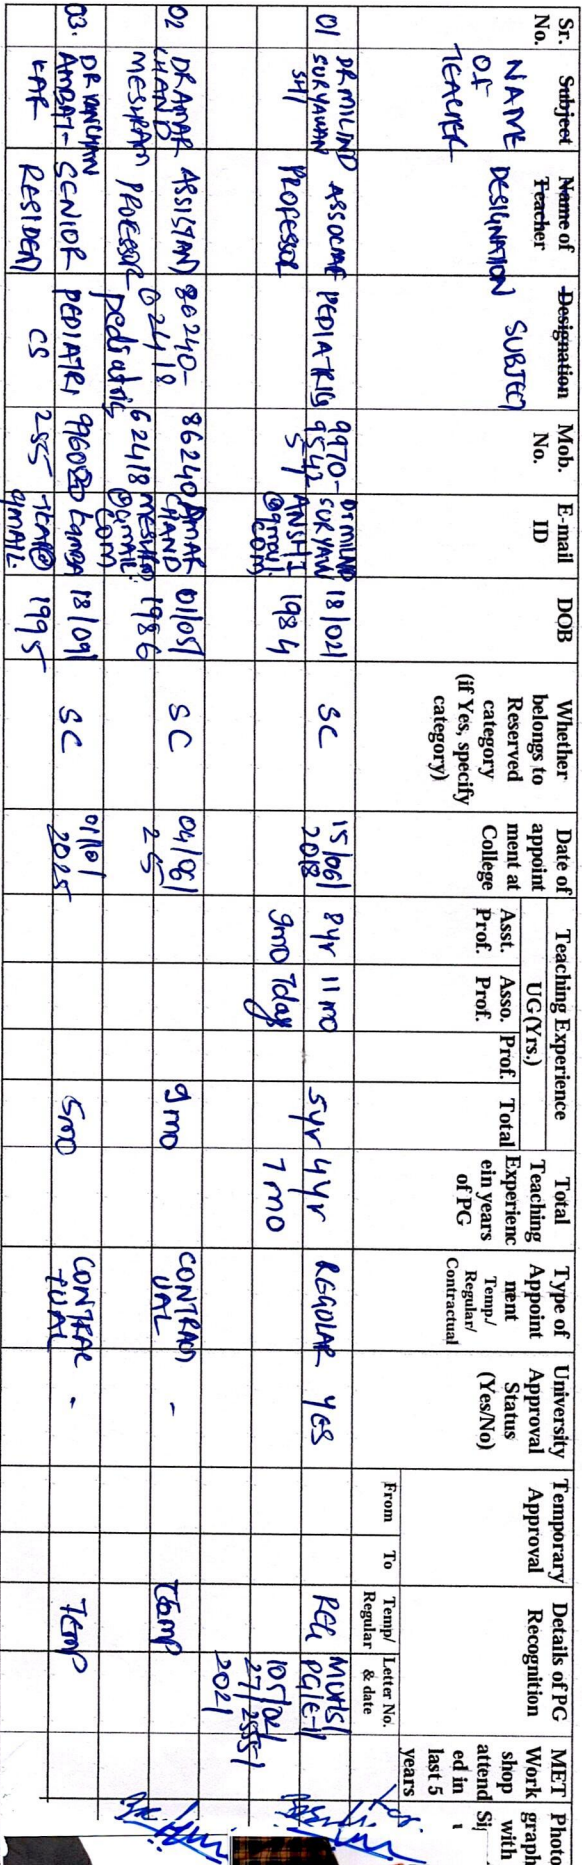 Sr. No.
Subject
NAME OF TEACHER
Name of Teacher
DESIGNATION
Designation
SUBJECT
Mob. No.
E-mail ID
DOB
Whether belongs to Reserved category (if Yes, specify category)
Date of appoint ment at College
Teaching Experience
UG(Yrs.)
Asst. Prof.
Asso. Prof.
Prof.
Total
Total Teaching Experienc ein years of PG
Type of Appoint ment
Temp./ Regular/ Contractual
University Approval Status (Yes/No)
Temporary Approval
From
To
Details of PG Recognition
Temp/ Regular
Letter No. & date
MET Work shop attend ed in last 5 years
Photo graph with
01
DR MILIND SURYAWAN SHI
PROFESSOR
9970-
18/02/ 1984
SC
15/06/ 2018
8yr 9mo
11 mo 7day
5yr
4yr 7mo
REGULAR
YES
REG
MUHS/
105/
2021
02
DR AMAR CHAND MESHRAM
ASSISTAN) PROFESSOR
80240- 02418 pediatric
86240 62418
AMAR CHAND MESHRAM @GMAIL COM
01/05/ 1986
SC
04/08/ 25
9mo
CONTRACT UAL
-
Temp
03.
AMBAT- KAR
SENIOR RESIDENT
PEDIATRI CS
18/09/ 1995
SC
01/10/ 2025
5mo
CONTRAC TUAL
-
TEMP